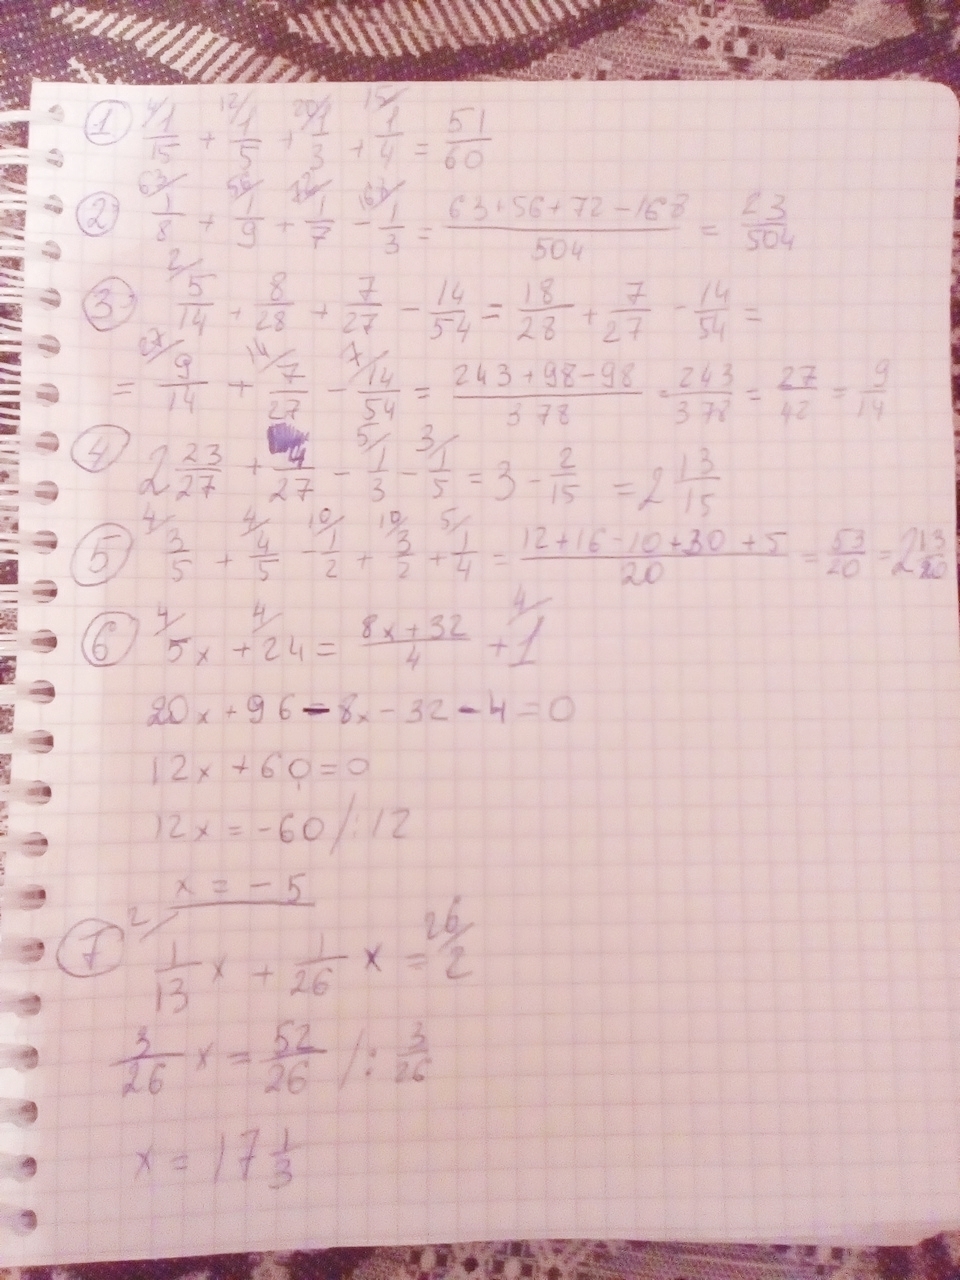 ① 4/ 1/15 + 12/ 1/5 + 20/ 1/3 + 15/ 1/4 = 51/60
② 63/ 1/8 + 56/ 1/9 + 72/ 1/7 - 168/ 1/3 = (63+56+72-168)/504 = 23/504
③ 2/ 5/14 + 8/28 + 7/27 - 14/54 = 18/28 + 7/27 - 14/54 =
= 27/ 9/14 + 14/ 7/27 - 7/ 14/54 = (243+98-98)/378 = 243/378 = 27/42 = 9/14
④ 2 23/27 + 4/27 - 5/ 1/3 - 3/ 1/5 = 3 - 2/15 = 2 13/15
⑤ 4/ 3/5 + 4/ 4/5 - 10/ 1/2 + 10/ 3/2 + 5/ 1/4 = (12+16-10+30+5)/20 = 53/20 = 2 13/20
⑥ 4/ 5x + 4/ 24 = (8x+32)/4 + 4/ 1
20x + 96 - 8x - 32 - 4 = 0
12x + 60 = 0
12x = -60 /:12
x = -5
⑦ 2/ 1/13 x + 1/26 x = 26/ 2
3/26 x = 52/26 /: 3/26
x = 17 1/3